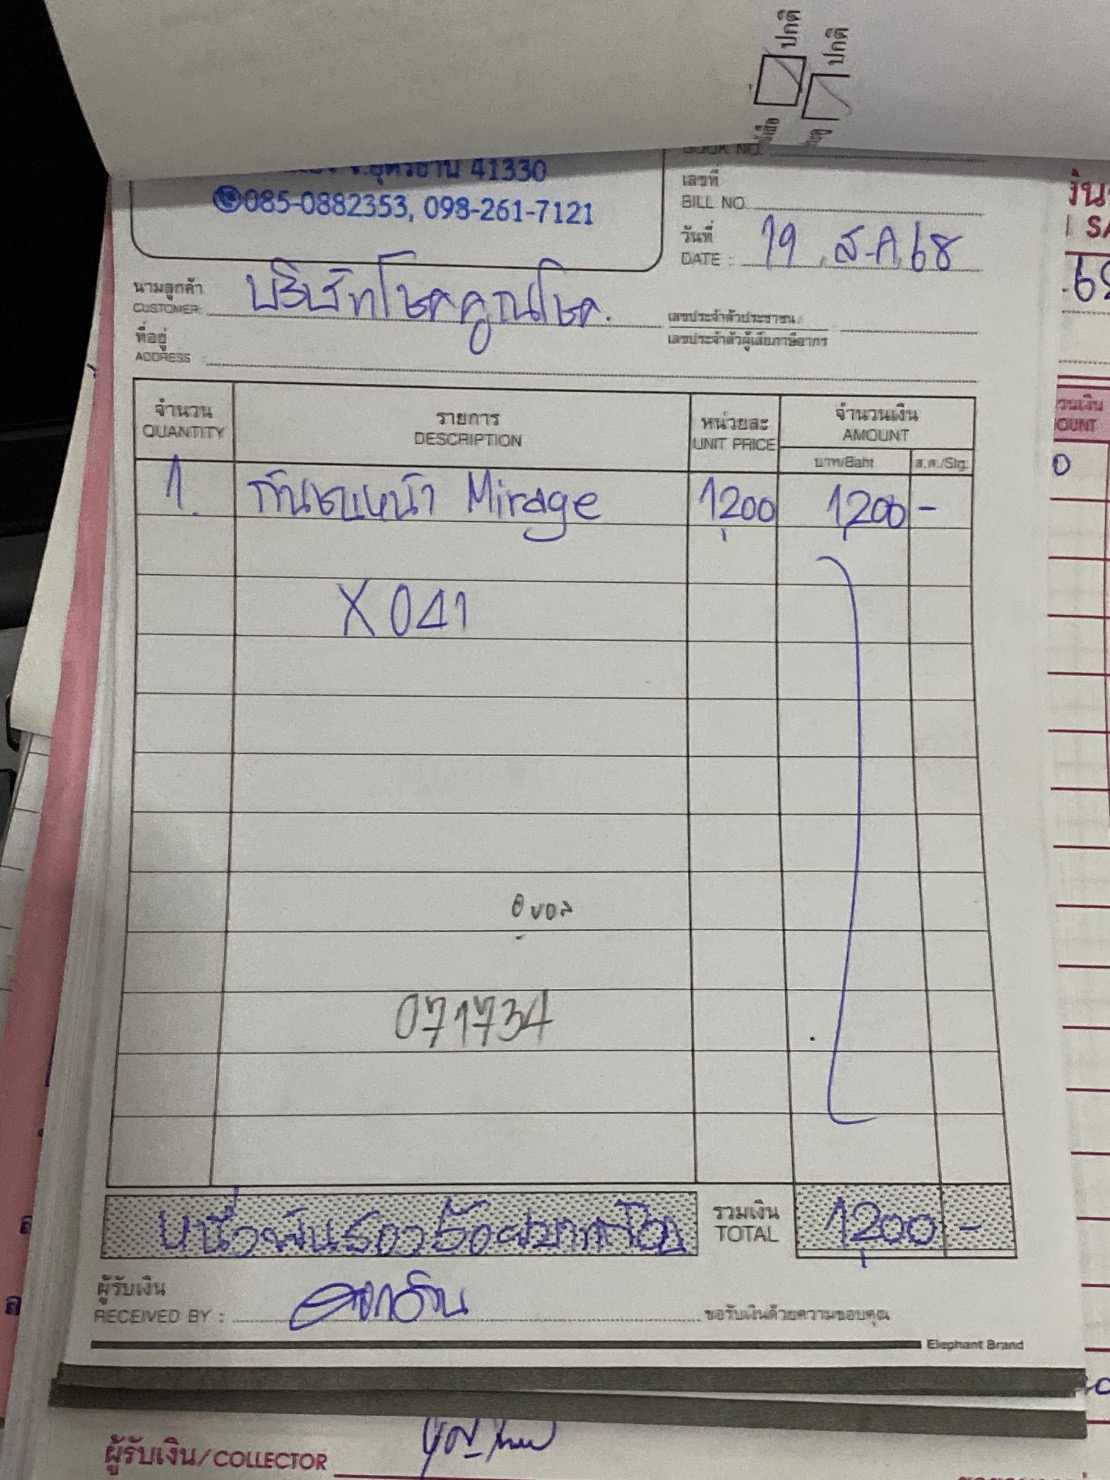 ปกติ
ปกติ
จ.อุดรธานี 41330
085-0882353, 098-261-7121
BOOK NO.
เลขที่
BILL NO.
วันที่
DATE : 19 ส.ค. 68
นามลูกค้า
CUSTOMER: บริษัทโชคคูณโชค
เลขประจำตัวประชาชน/
เลขประจำตัวผู้เสียภาษีอากร
ที่อยู่
ADDRESS :
จำนวน รายการ หน่วยละ จำนวนเงิน
QUANTITY DESCRIPTION UNIT PRICE AMOUNT
บาท/Baht ส.ต./Stg.
1 กันชนหน้า Mirage 1,200 1,200 -
X 041
071734
หนึ่งพันสองร้อยบาทถ้วน
รวมเงิน
TOTAL 1,200 -
ผู้รับเงิน
RECEIVED BY : ขอรับเงินด้วยความขอบคุณ
Elephant Brand
ผู้รับเงิน/COLLECTOR